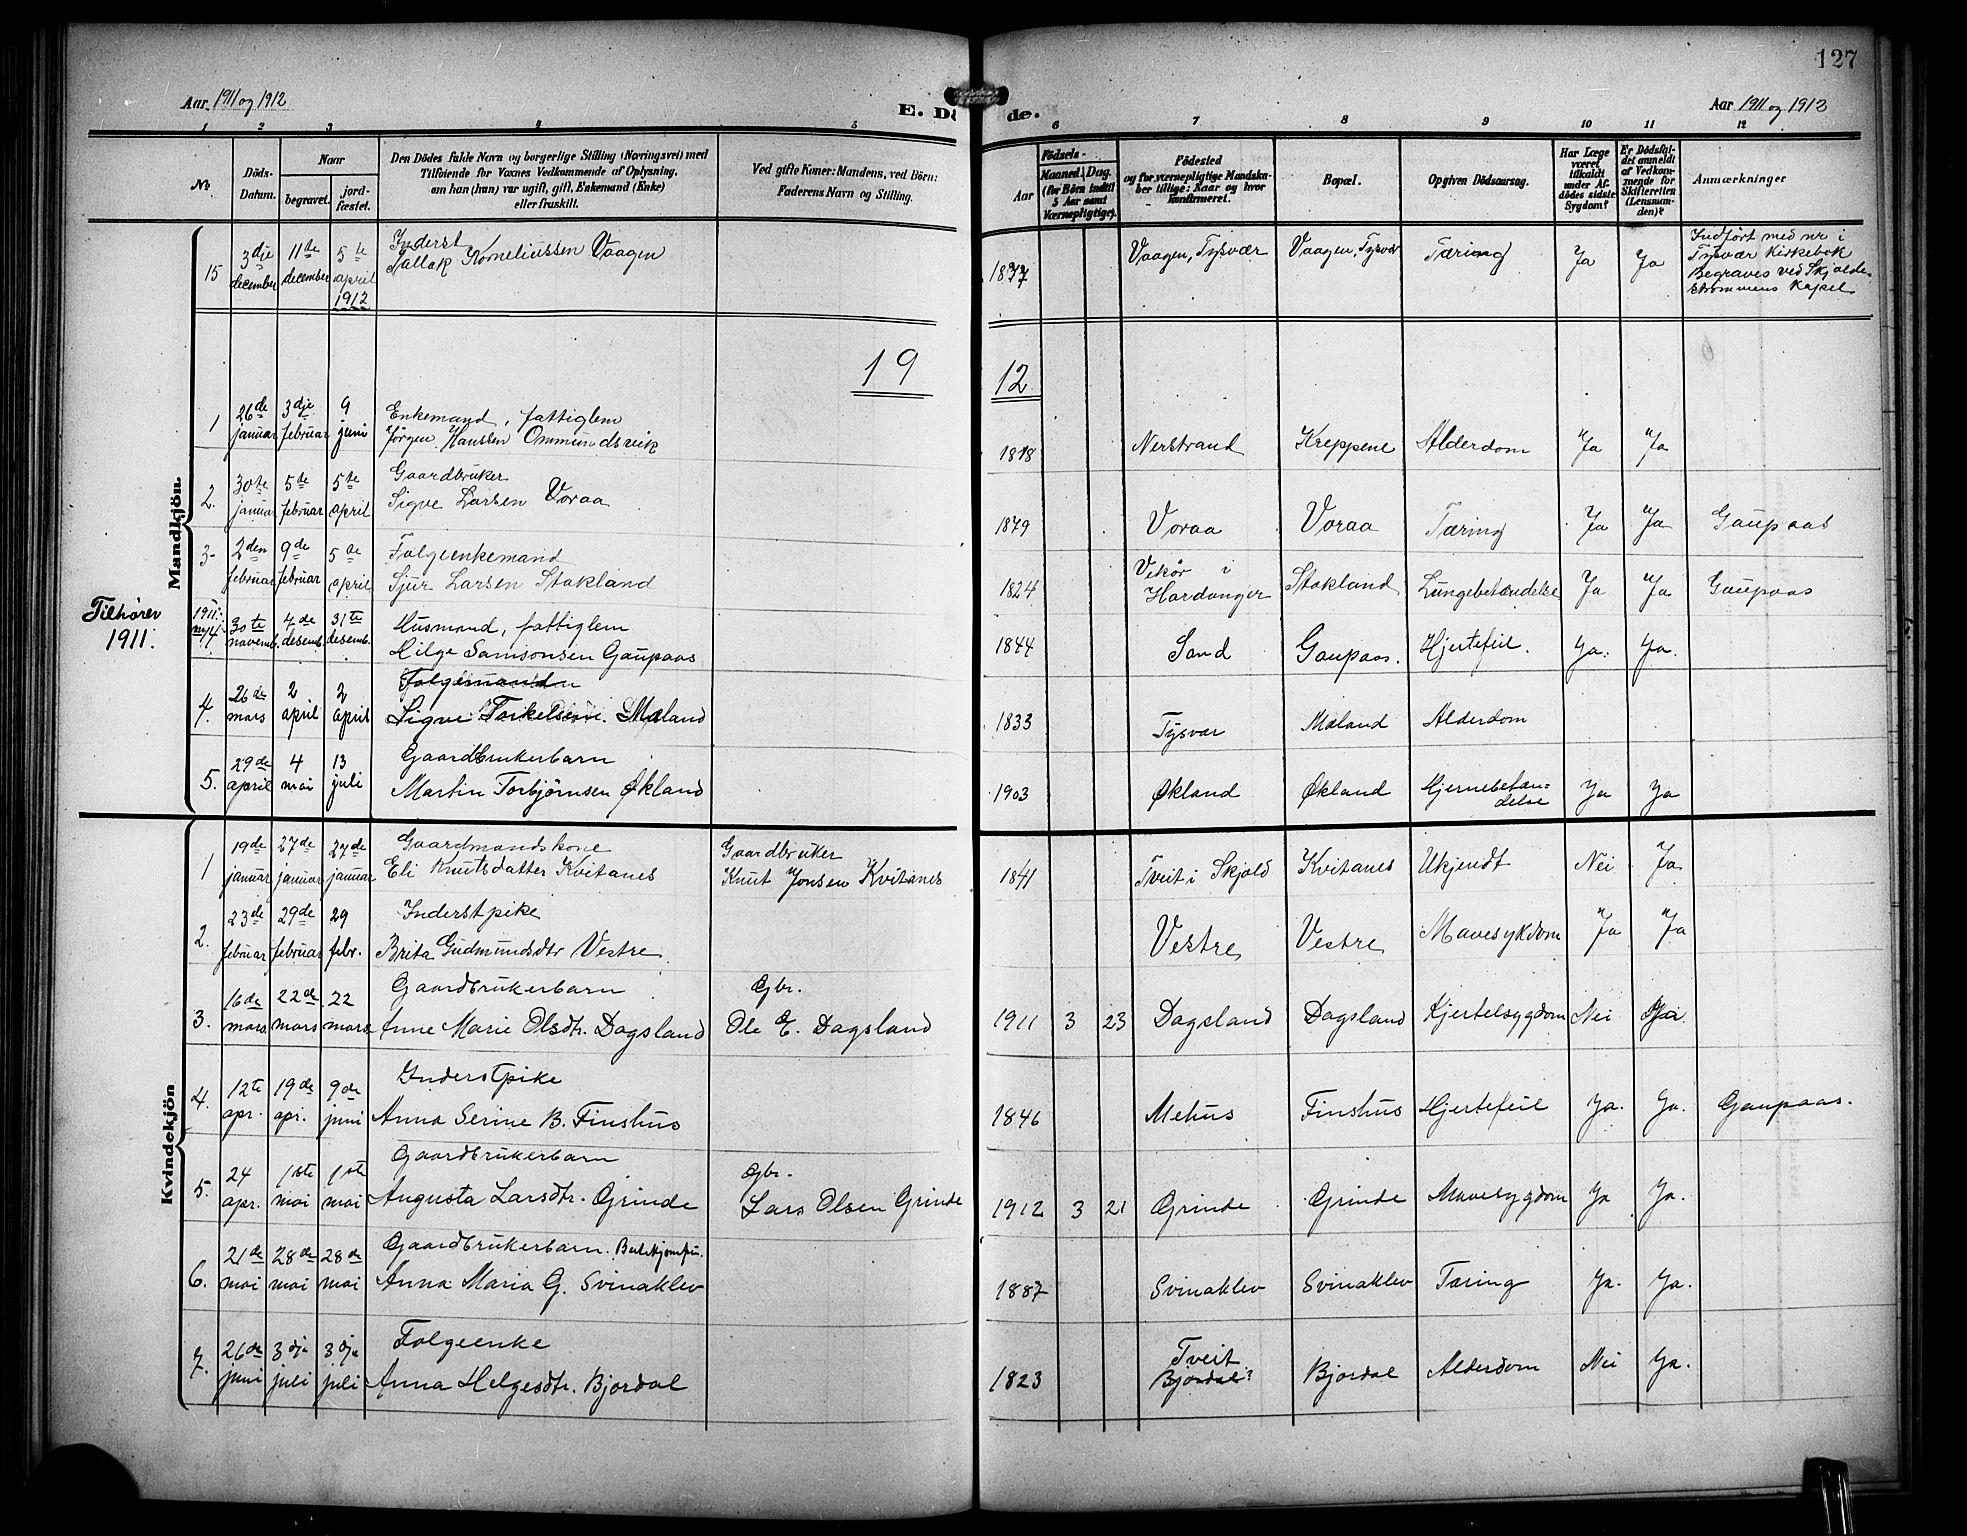 127
Aar 1911 og 1912
E. Dö
de.
Aar 1911 og 1912
1 2 3 4 5 6 7 8 9 10 11 12
No.
Döds-
Datum.
Naar
begravet.
jord-
fæstet.
Den Dödes fulde Navn og borgerlige Stilling (Næringsvei) med
Tilföiende for Voxnes Vedkommende af Oplysning,
om han (hun) var ugift, gift, Enkemand (Enke)
eller fraskilt.
Ved gifte Koner: Mandens, ved Börn:
Faderens Navn og Stilling.
Födsels-
Aar
Maaned. Dag.
(for Börn indtil
5 Aar samt
Værnepligtige).
Födested
og for værnepligtige Mandska-
ber tillige: Naar og hvor
konfirmeret.
Bopæl.
Opgiven Dödsaarsag.
Har Læge
været
tilkaldt
under Af-
dödes sidste
Sygdom?
Er Dödsfal-
det anmeldt
af Vedkom-
mende for
Skifteretten
(Lensman-
den)?
Anmærkninger
Mandkjön.
15 3dje december 11te december 5te april 1912 Inderst
Tallak Korneliussen Vaagen 1877 Vaagen, Tysvær Vaagen, Tysvær Tæring Ja Ja Indført med nr i
Tysvær Kirkebok
Begraves ved Skjolde-
strømmens Kapel
19
12
1 26de januar 3dje februar 9 juni Enkemand, fattiglem
Jørgen Hanssen Ommundsvik 1818 Nerstrand Kreppene Alderdom Ja Ja
2. 30te januar 5te februar 5te april Gaardbruker
Sigve Larsen Voraa 1879 Voraa Voraa Tæring Ja Ja Gaupaas
3- 2den februar 9de februar 5de april Folgeenkemand
Sjur Larsen Stakland 1824 Vikør i
Hardanger Stakland Lungebetændelse Ja Ja Gaupaas
Tilhører
1911.
1911: nr 14. 30te novemb. 4de desemb. 31te desemb. Husmand, fattiglem
Hilge Samsonsen Gaupaas 1844 Sand Gaupaas. Hjertefeil. Ja. Ja.
4. 26de mars 2 april 2 april Folgemand
Sigve Torkelsen. Maland 1833 Tysvær Maland Alderdom
5. 29de april 4 mai 13 juli Gaardbrukerbarn
Martin Torbjørnsen Økland 1903 Økland Økland Hjernebetæn-
delse Ja Ja
Kvindekjön
1 19de januar 27de januar 27de januar Gaardmandskone
Eli Knutsdatter Kvitanes Gaardbruker
Knut Jonsen Kvitanes 1841 Tveit i Skjold Kvitanes Ukjendt Nei Ja
2. 23de februar 29de februar 29 febr. Inderstpike
Brita Gudmundsdtr Vestre Vestre Vestre Mavesykdom Ja Ja
3. 16de mars 22de mars 22 mars Gaardbrukerbarn
Anne Marie Olsdtr. Dagsland Gbr.
Ole E. Dagsland 1911 3 23 Dagsland Dagsland Kjertelsygdom Nei Ja
4. 12te apr. 19de apr. 9de juni Inderstpike
Anna Serine B. Finshus 1846 Mehus Finshus Hjertefeil Ja. Ja. Gaupaas.
5. 24 apr. 1ste mai 1ste mai Gaardbrukerbarn
Augusta Larsdtr. Grinde Gbr.
Lars Olsen Grinde 1912 3 21 Grinde Grinde Mavesygdom Ja Ja.
6. 21de mai 28de mai 28de mai Gaardbrukerbarn.
Anna Maria G. Svinaklev 1887 Svinaklev Svinaklev Tæring Ja. Ja.
7. 26de juni 3dje juli 3dje juli Folgeenke
Anna Helgesdtr. Bjordal 1823 Tveit
Bjordal? Bjordal Alderdom Nei Ja.